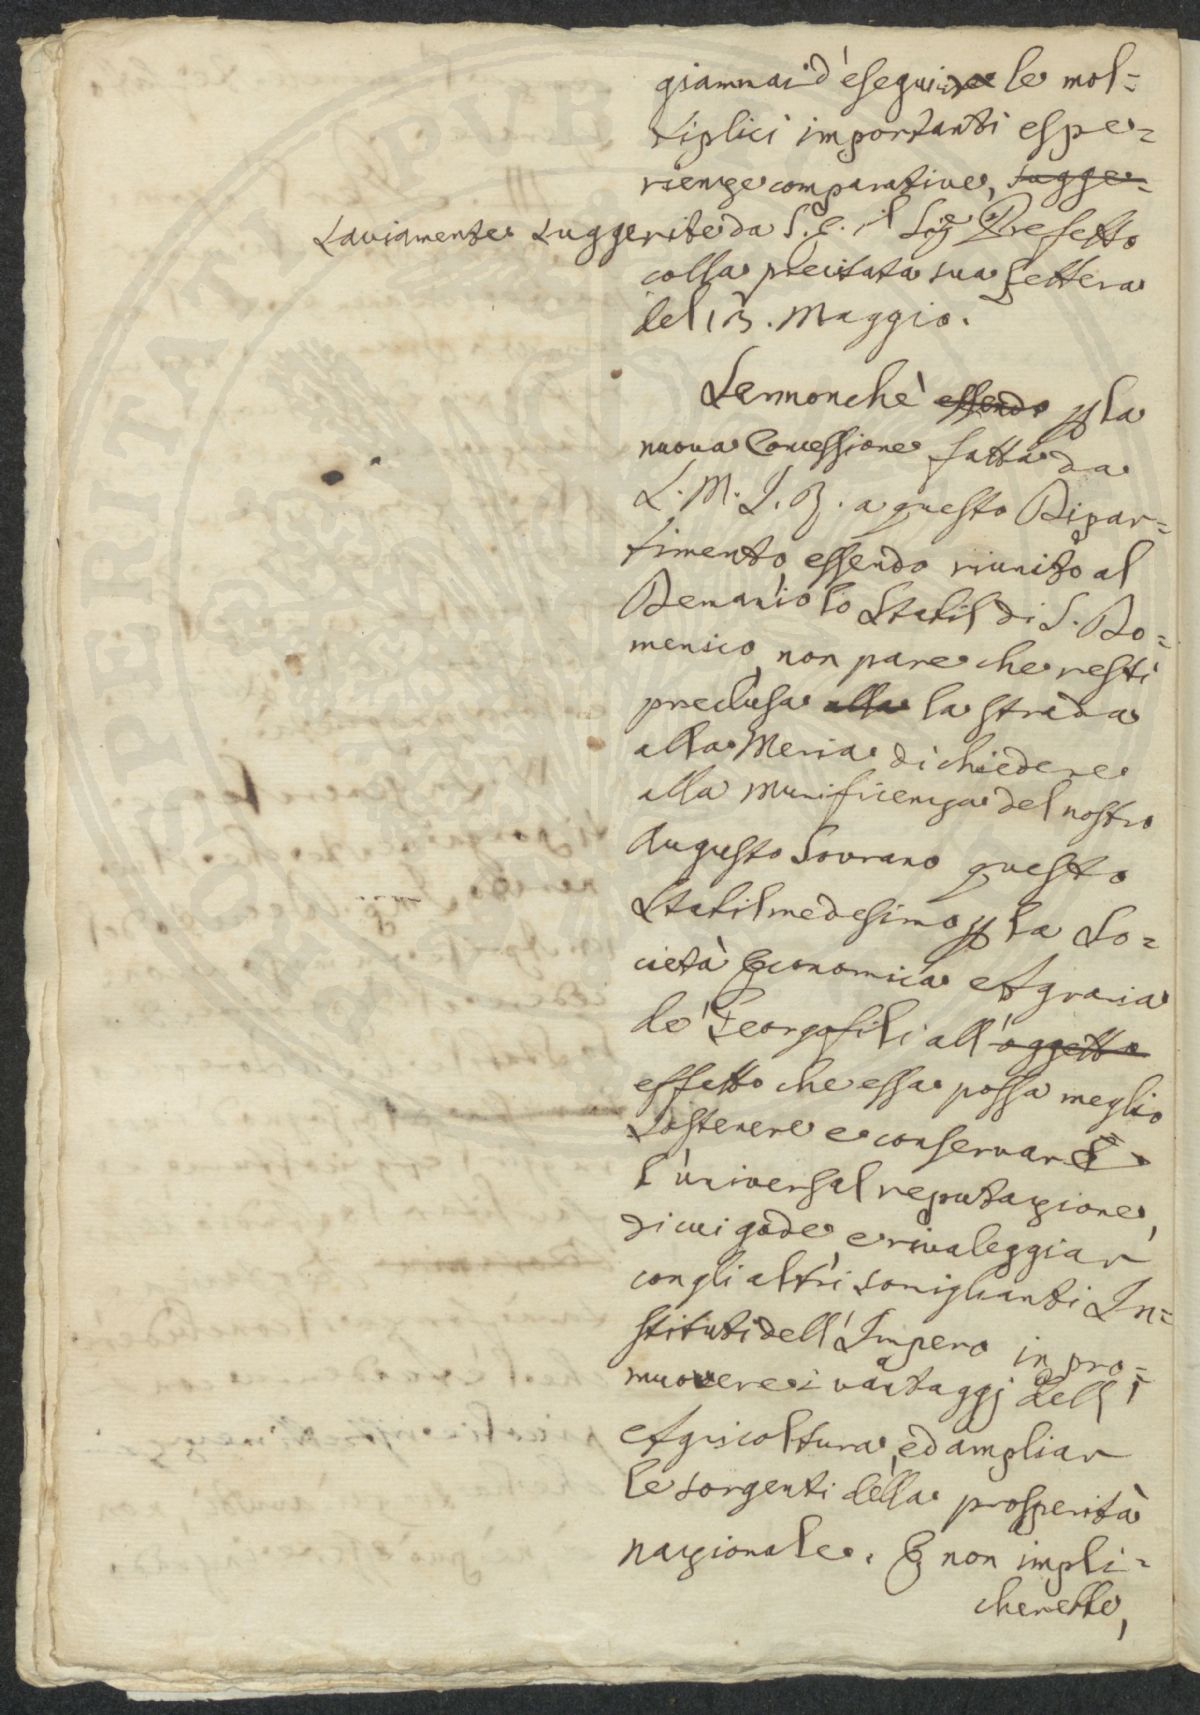 giammai d'eseguire le mol=
tiplici importanti espe=
rienze comparative, sugge=
saviamente suggerite da S. E. il Sig.e Prefetto
colla precitata sua Lettera
del 13. Maggio.
Sennonchè essendo p la
nuova Concessione fatta da
S. M. I. R. a questo Dipar=
timento essendo riunito al
Demanio lo Stabil di S. Do=
menico, non pare che resti
preclusa alla la strada
alla Meria di chiedere
alla Munificenza del nostro
Augusto Sovrano questo
Stabil medesimo p la So=
cietà Economica e Agraria
de' Georgofili all' oggetto
effetto che essa possa meglio
sostenere e conservar
l'universal reputazione,
di cui gode, e rivaleggiar
con gli altri somiglianti In=
stituti dell'Impero in pro=
muovere i vantaggj dell'
Agricoltura, ed ampliar
le sorgenti della prosperità
nazionale. E non impli=
cherebbe,